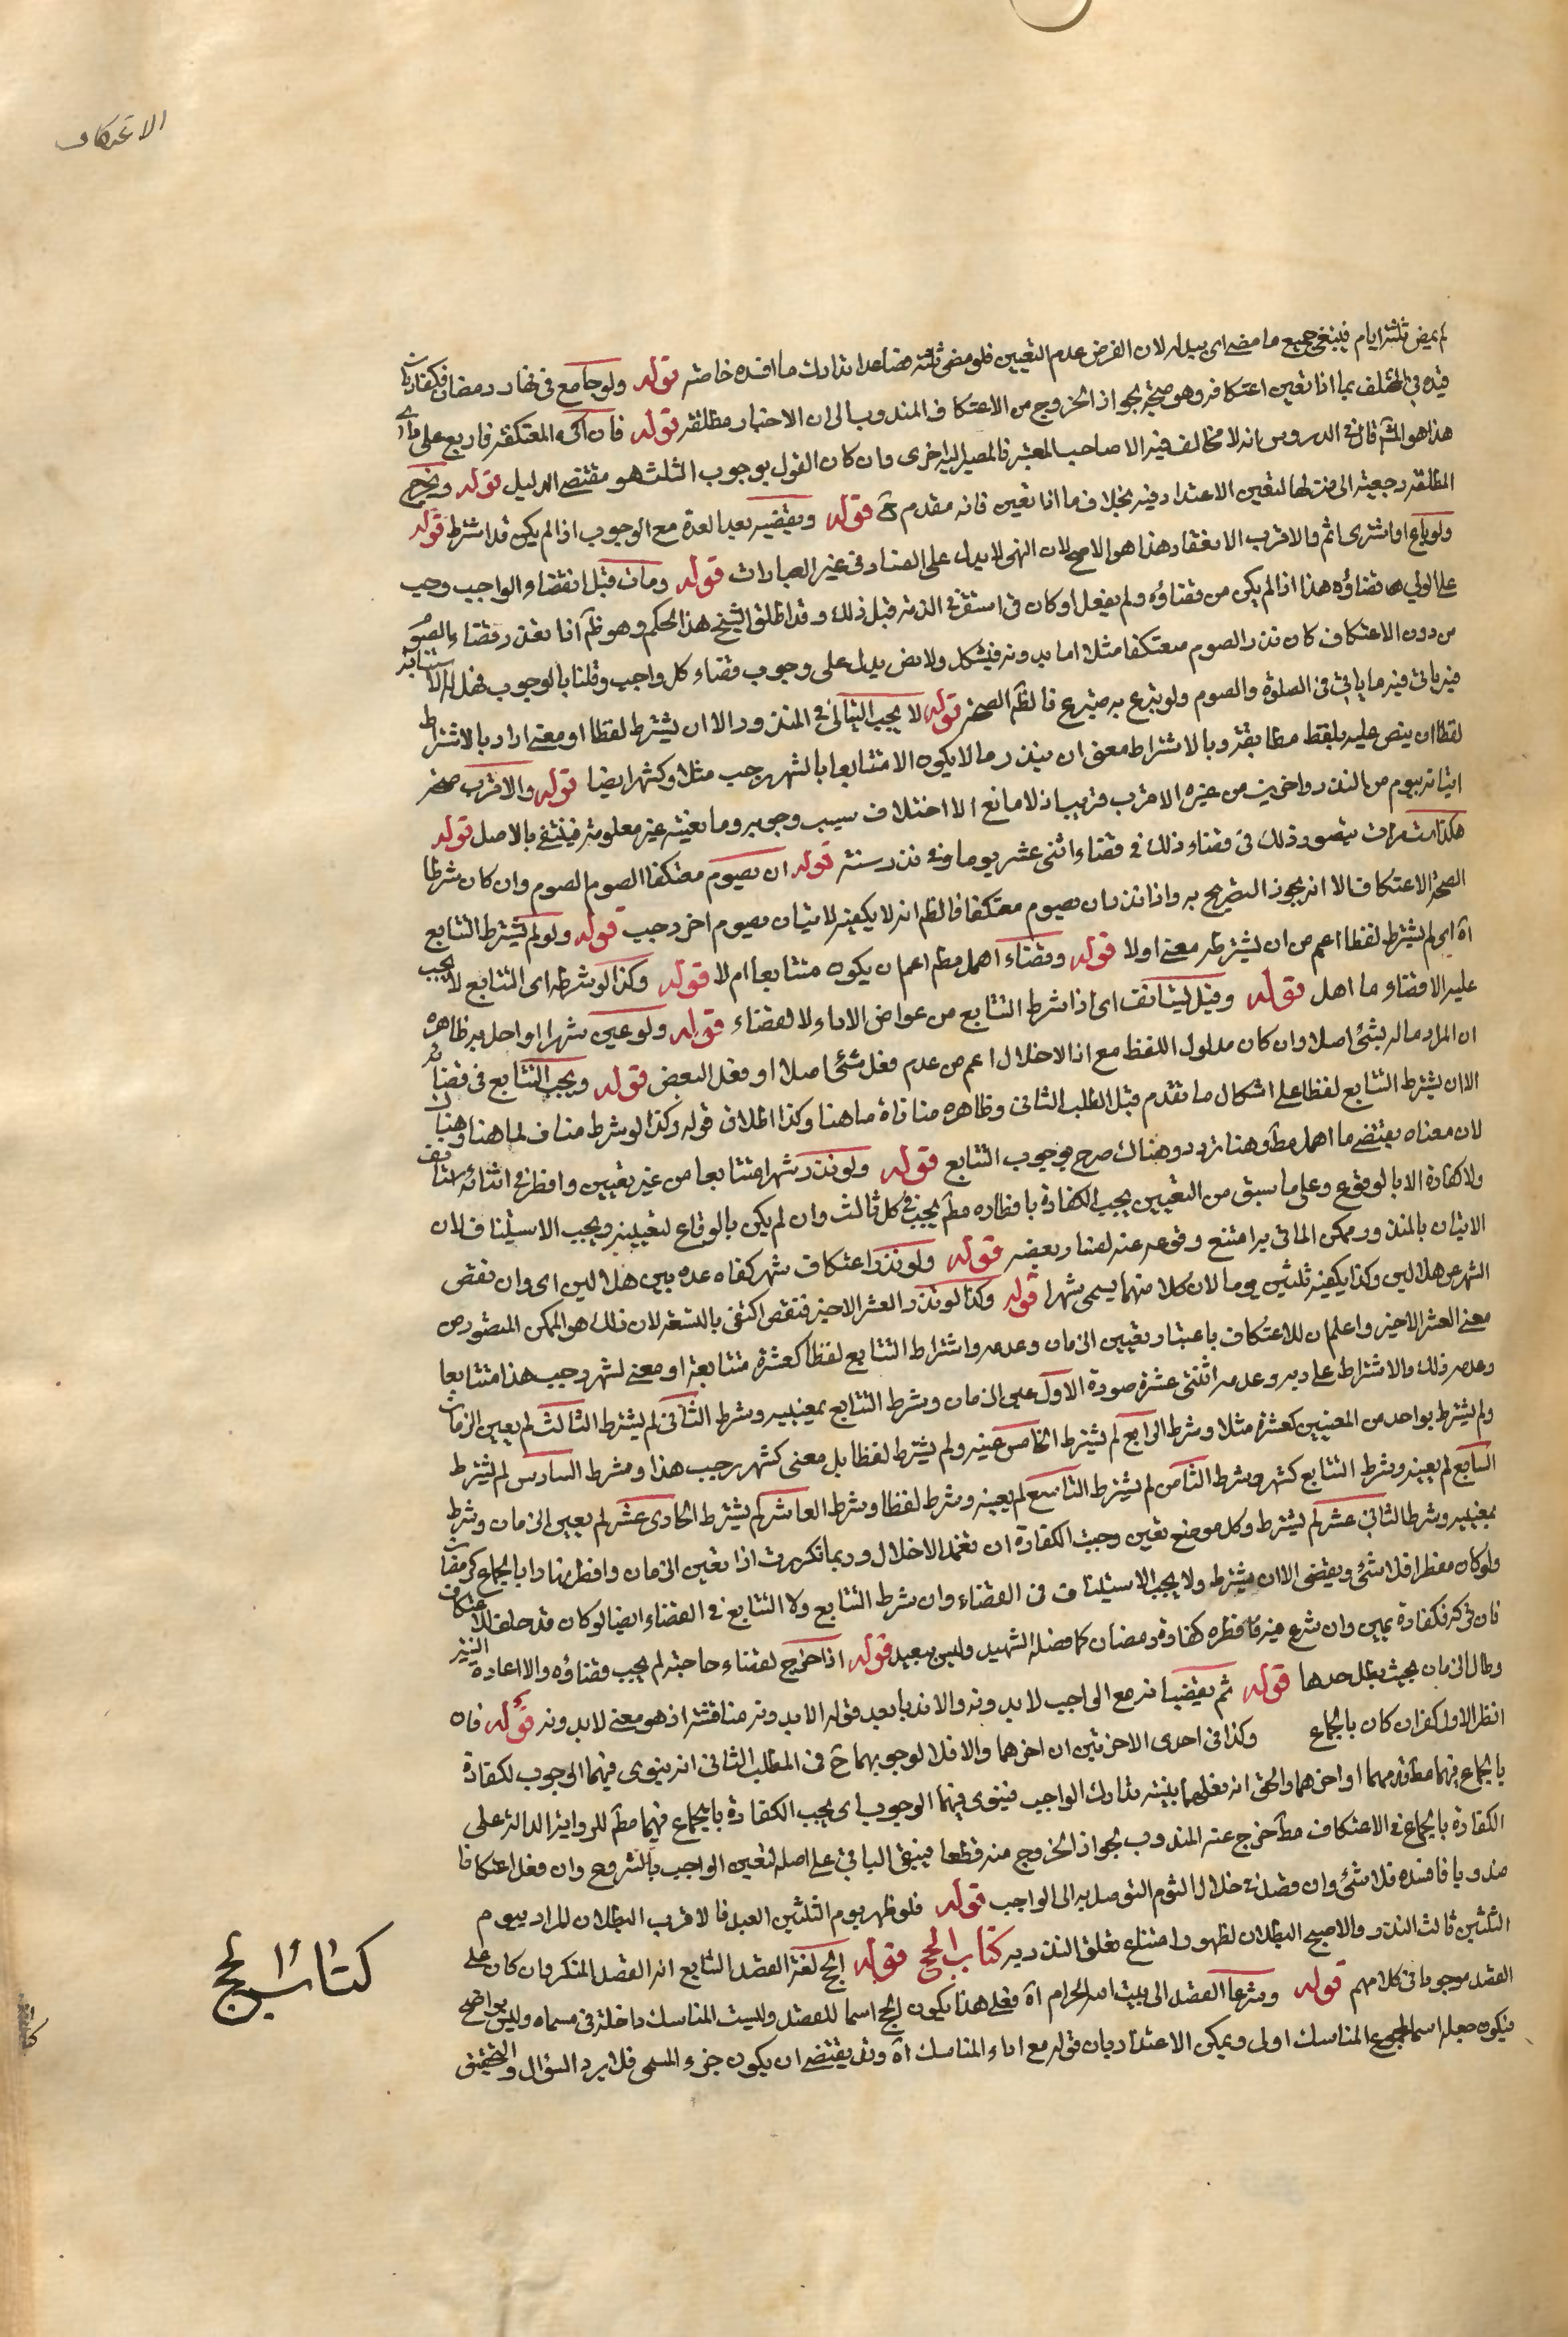 الاعتكاف
لم يمض ثلثة ايام فينبغى جميع ما مضى اى يبطل لان الفرض عدم التعيين فلو مضى ثلثة فصاعدا تدارك ما افسده خاصة قوله ولو جامع فى نهار رمضان فكفارتان
قيده فى المختلف بما اذا تعين اعتكافه وهو متجه لجواز الخروج من الاعتكاف المندوب الى ان الاخبار مطلقة قوله فان اكره المعتكفة فاربع على راى
هذا هو المش قال فى الدروس انه لا مخالف فيه الا صاحب المعتبر فالمصير اليه احرى وان كان القول بوجوب الثلث هو مقتضى الدليل قوله ويخرج
المطلقة رجعية الى منزلها لتعين الاعتداد فيه بخلاف ما اذا تعين فانه مقدم ح قوله ويقضيه بعد العدة مع الوجوب اذا لم يكن قد اشترط قوله
ولو باع او اشترى اثم والاقرب الانعقاد هذا هو الاصح لان النهى لا يدل على الفساد فى غير العبادات قوله ومات قبل انقضاء الواجب وجب
على الولي قضاؤه هذا اذا لم يكن من قضاؤه ولم يفعل او كان قد استقر فى الذمة قبل ذلك وقد اطلق الشيخ هذا الحكم وهو ظم اذا تعذر قضاء الصوم
من دون الاعتكاف كان نذر الصوم معتكفا مثلا اما بدونه فيشكل ولا نص يدل على وجوب قضاء كل واجب وقلنا بالوجوب فهل له الاستنابة
فيه ياتى فيه ما ياتى فى الصلوة والصوم ولو تبرع به متبرع فالظم الصحة قوله لا يجب التتالى فى المنذور الا ان يشترط لفظا او معنى اراد بالاشتراط
لفظا ان ينص عليه بلفظ مطابقة وبالاشتراط معنى ان ينذر ما لا يكون الا متتابعا بالشهر رجب مثلا وكشهر ايضا قوله والاقرب صحة
اتيانه بيوم من النذر واخريين من غيره الاقرب قريب اذ لا مانع الا اختلاف سبب وجوبه وما نعيته غير معلومة فينتفى بالاصل قوله
هكذا ست مرات يتصور ذلك فى قضاء ذلك فى قضاء اثنى عشر يوما وفى نذر ستة قوله ان يصوم معتكفا الصوم للصوم وان كان شرطا
لصحة الاعتكاف الا انه يجوز التصريح به واذا نذر ان يصوم معتكفا فالظم انه لا يكفيه الاتيان بصوم اخر وجب قوله ولو لم يشترط التتابع
اه اى لم يشترط لفظا اعم من ان يشترط معنى اولا قوله وقضاء اهمل مطم اعم ان يكون متتابعا ام لا قوله وكذا لو شرطه اى التتابع لا يجب
عليه الا قضاء ما اهمل قوله وقيل يستانف اى اذا شرط التتابع من عوارض الاداء لا القضاء قوله ولو عين شهرا واخل به ظاهره
ان المراد ما لم يشئ اصلا وان كان مدلول اللفظ مع اذ الاخلال اعم من عدم فعل شئ اصلا او فعل البعض قوله ويجب التتابع فى قضائه
الا ان يشترط التتابع لفظا على اشكال ما تقدم قبل المطلب الثانى وظاهره منافاة ما هنا وكذا اطلاق قوله وكذا لو شرط مناف لما هنا وهناك
لان معناه يقتضى ما اهمل مطم وهنا تردد وهناك صرح بوجوب التتابع قوله ولو نذر شهرا متتابعا من غير تعيين وافطر فى اثنائه استانف
ولا كفارة الا بالوقوع وعلى ما سبق من التعيين يجب الكفارة بافطاره مطم يجب فى كل ثالث وان لم يكن بالوقاع لتعيينه ويجب الاستيناف لان
الاتيان بالمنذور ممكن الماتى به امتنع وقوعه عنه لفساد بعضه قوله ولو نذر اعتكاف شهر كفاه عده بين هلالين اى وان نقص
الشهر عن هلالين وكذا يكفيه ثلثين يوما لان كلا منهما يسمى شهرا قوله وكذا لو نذر العشر الاخير فنقص اكتفى بالتسعة لان ذلك هو الممكن المتصور من
معنى العشر الاخير واعلم ان للاعتكاف باعتبار تعيين الزمان وعدمه واشتراط التتابع لفظا كعشرة متتابعة او معنى لشهر رجب هذا متتابعا
وعدم ذلك والاشتراط على ربه وعدمه اثنتى عشرة صورة الاول عين الزمان وشرط التتابع بمعنييه وشرط الثانى لم يشترط الثالث لم يعين الزمان
ولم يشترط بواحد من المعنيين كعشرة مثلا وشرط الرابع لم يشترط الخامس عينه ولم يشترط لفظا بل معنى كشهر رجب هذا ومشرط السادس لم يشترط
السابع لم يعينه وشرط التتابع كشهر وشرط الثامن لم يشترط التاسع لم يعينه وشرط لفظا وشرط العاشر لم يشترط الحادى عشر لم يعين الزمان وشرط
بمعنييه وشرط الثانى عشر لم يشترط وكل موضع تعين وجبت الكفارة ان تعمد الاخلال وربما تكررت اذا تعين الزمان وافطر نهارا بالجماع كرمضان
ولو كان مفطرا فلا شئ ويقضى الا ان يشترط ولا يجب الاستيناف فى القضاء وان شرط التتابع ولا التتابع فى القضاء ايضا لو كان قد حلف للاعتكاف
فان تركه فكفارة يمين وان شرع فيه فافطره كفارة رمضان كما فصله الشهيد وليس ببعيد قوله اذا خرج لقضاء حاجته لم يجب قضاؤه والا اعادة النية
وطال الزمان بحيث بطل حدها قوله ثم يقضيانه مع الواجب لا بدونه والاندباب بعد قوله الا بدونه مناقشة اذ هو معنى لا بدونه قوله فان
افطر الاول كفر ان كان بالجماع وكذا فى احدى الاخرتين ان اخرهما والا فلا لوجوبهما ح فى المطلب الثانى انه ينوى فيهما الوجوب لكفارة
بالجماع فيهما مطم قدمهما او اخرهما والحق انه يفعلهما بنية تدارك الواجب فينوى فيهما الوجوب اى يجب الكفارة بالجماع فيهما مطم للرواية الدالة على
الكفارة بالجماع فى الاعتكاف مطم خرج عنه المندوب لجواز الخروج منه قطعا فيبقى الباقى على اصله لتعين الواجب بالشروع وان فعل اعتكافا
مندوبا فافسده فلا شئ وان قصد فى خلال اليوم التوصل به الى الواجب قوله فلو ظهر يوم الثلثين العيد فالاقرب البطلان المراد بيوم
الثلثين ثالث النذر والاصح البطلان لظهور امتناع تعلق النذر به كتاب الحج قوله الحج لغة القصد الشايع انه القصد المتكرر وان كان على
القصد موجودا فى كلامهم قوله وشرعا القصد الى بيت الله الحرام اه فعلى هذا يكون الحج اسما للقصد وليست المناسك داخلة فى مسماه وليس بواضح
فيكون جعله اسما لمجموع المناسك اولى ويمكن الاعتذار بان قوله مع اداء المناسك اه وقد يقتضى ان يكون جزء المسمى فلا يرد السؤال والتحقيق
كتاب الحج